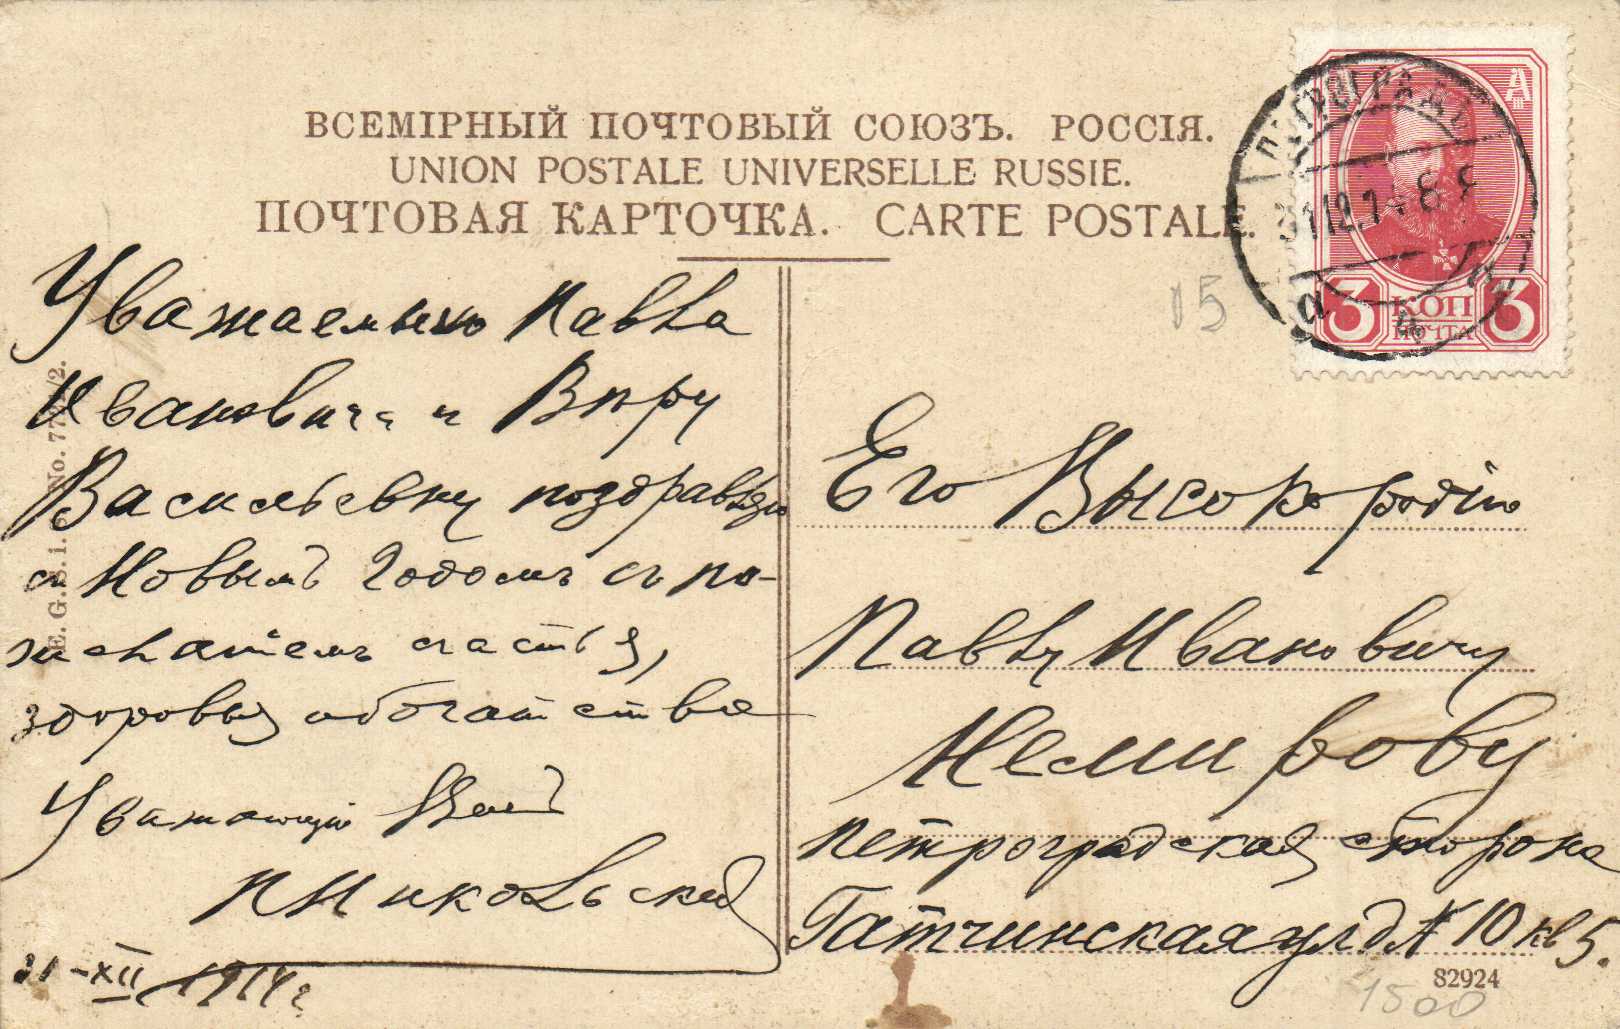 ВСЕМІРНЫЙ ПОЧТОВЫЙ СОЮЗЪ. РОССІЯ.
UNION POSTALE UNIVERSELLE RUSSIE.
ПОЧТОВАЯ КАРТОЧКА. CARTE POSTALE.
ПЕТРОГРАДЪ
31.12.14
3 КОП 3
ПОЧТА
15
Уважаемыхъ Павла
Ивановича и Вѣру
Васильевну поздравляю
съ Новымъ Годомъ съ по-
желаніемъ счастья,
здоровья и богатства
Уважающій Васъ
П Никольскій
31-XII 1914 г
Его Высокородію
Павлу Ивановичу
Немирову
Петроградская сторона
Гатчинская ул д № 10 кв 5.
E. G. S. i. S. No. 77 /2.
82924
1500